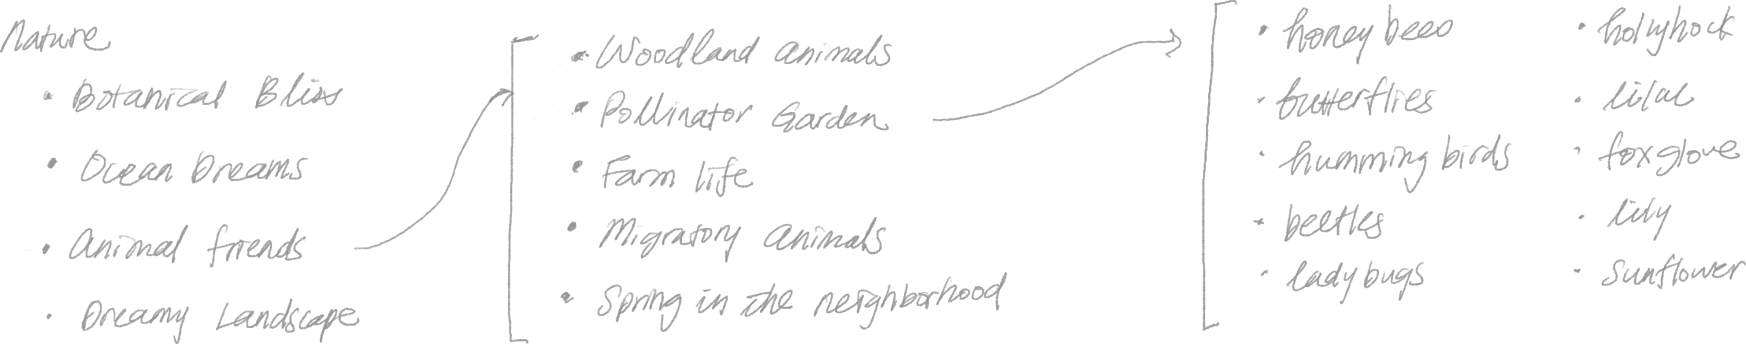 Nature
• Botanical Bliss
• Ocean Dreams
• Animal friends
• Dreamy Landscape
• Woodland animals
• Pollinator Garden
• Farm life
• Migratory animals
• Spring in the neighborhood
• honey bees
• butterflies
• humming birds
• beetles
• lady bugs
• hollyhock
• lilac
• foxglove
• lily
• sunflower